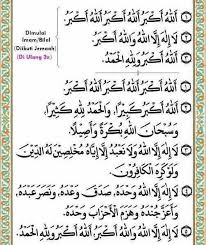 اَللهُ أَكْبَرُ اَللهُ أَكْبَرُ اَللهُ أَكْبَرُ.
Dimulai
Imam/Bilal
(Diikuti Jemaah)
(Di Ulang 3x)
لَا إِلٰهَ إِلَّا اللهُ وَاللهُ أَكْبَرُ.
اَللهُ أَكْبَرُ وَلِلّٰهِ الْحَمْدُ.
اَللهُ أَكْبَرُ اَللهُ أَكْبَرُ اَللهُ أَكْبَرُ.
اَللهُ أَكْبَرُ كَبِيْرًا، وَالْحَمْدُ لِلّٰهِ كَثِيْرًا،
وَسُبْحَانَ اللهِ بُكْرَةً وَأَصِيْلًا.
لَا إِلٰهَ إِلَّا اللهُ وَلَا نَعْبُدُ إِلَّا إِيَّاهُ مُخْلِصِيْنَ لَهُ الدِّيْنَ
وَلَوْ كَرِهَ الْكَافِرُوْنَ.
لَا إِلٰهَ إِلَّا اللهُ وَحْدَهُ، صَدَقَ وَعْدَهُ، وَنَصَرَ عَبْدَهُ،
وَأَعَزَّ جُنْدَهُ وَهَزَمَ الْأَحْزَابَ وَحْدَهُ.
لَا إِلٰهَ إِلَّا اللهُ وَاللهُ أَكْبَرُ اَللهُ أَكْبَرُ وَلِلّٰهِ الْحَمْدُ.